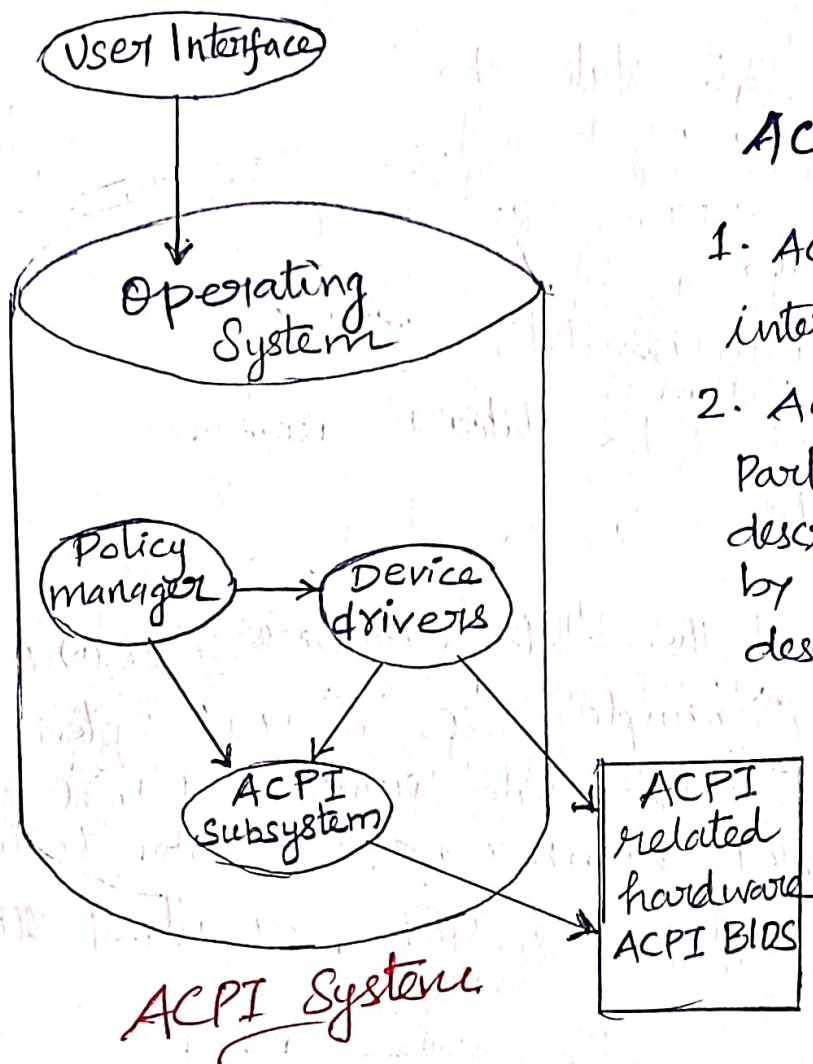 User Interface
Operating
System
Policy
manager
Device
drivers
ACPI
Subsystem
ACPI
related
hardware
ACPI BIOS
ACPI System
1.
2.
by